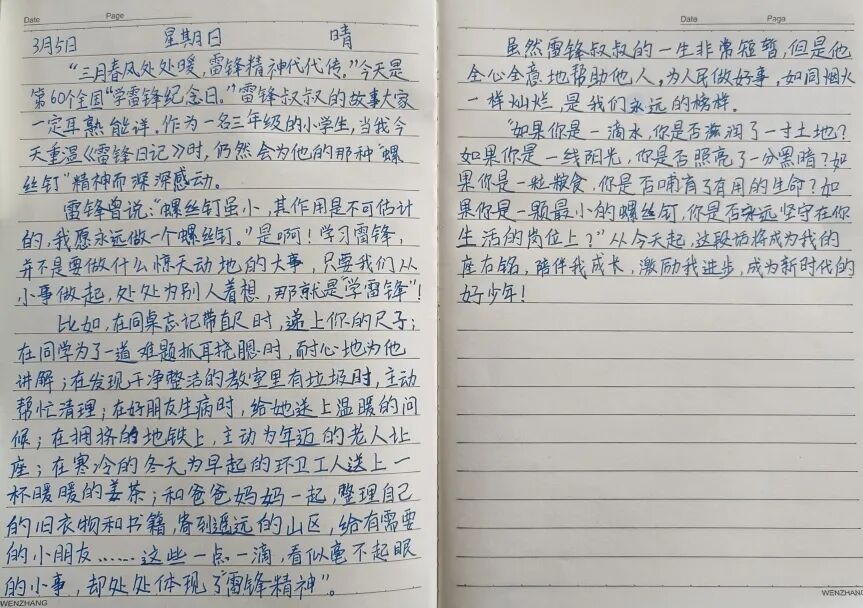 Date Page
3月5日 星期日 晴
“三月春风处处暖,雷锋精神代代传。”今天是
第60个全国“学雷锋纪念日。”雷锋叔叔的故事大家
一定耳熟能详。作为一名三年级的小学生,当我今
天重温《雷锋日记》时,仍然会为他的那种“螺
丝钉”精神而深深感动。
雷锋曾说:“螺丝钉虽小,其作用是不可估计
的,我愿永远做一个螺丝钉。”是啊!学习雷锋,
并不是要做什么惊天动地的大事,只要我们从
小事做起,处处为别人着想,那就是“学雷锋”!
比如,在同桌忘记带直尺时,递上你的尺子;
在同学为了一道难题抓耳挠腮时,耐心地为他
讲解;在发现干净整洁的教室里有垃圾时,主动
帮忙清理;在好朋友生病时,给她送上温暖的问
候;在拥挤的地铁上,主动为年迈的老人让
座;在寒冷的冬天为早起的环卫工人送上一
杯暖暖的姜茶;和爸爸妈妈一起,整理自己
的旧衣物和书籍,寄到遥远的山区,给有需要
的小朋友……这些一点一滴,看似毫不起眼
的小事,却处处体现了“雷锋精神”。
WENZHANG
Date Page
虽然雷锋叔叔的一生非常短暂,但是他
全心全意地帮助他人,为人民做好事,如同烟火
一样灿烂,是我们永远的榜样。
“如果你是一滴水,你是否滋润了一寸土地?
如果你是一线阳光,你是否照亮了一分黑暗?如
果你是一粒粮食,你是否哺育了有用的生命?如
果你是一颗最小的螺丝钉,你是否永远坚守在你
生活的岗位上?”从今天起,这段话将成为我的
座右铭,陪伴我成长,激励我进步,成为新时代的
好少年!
WENZHANG